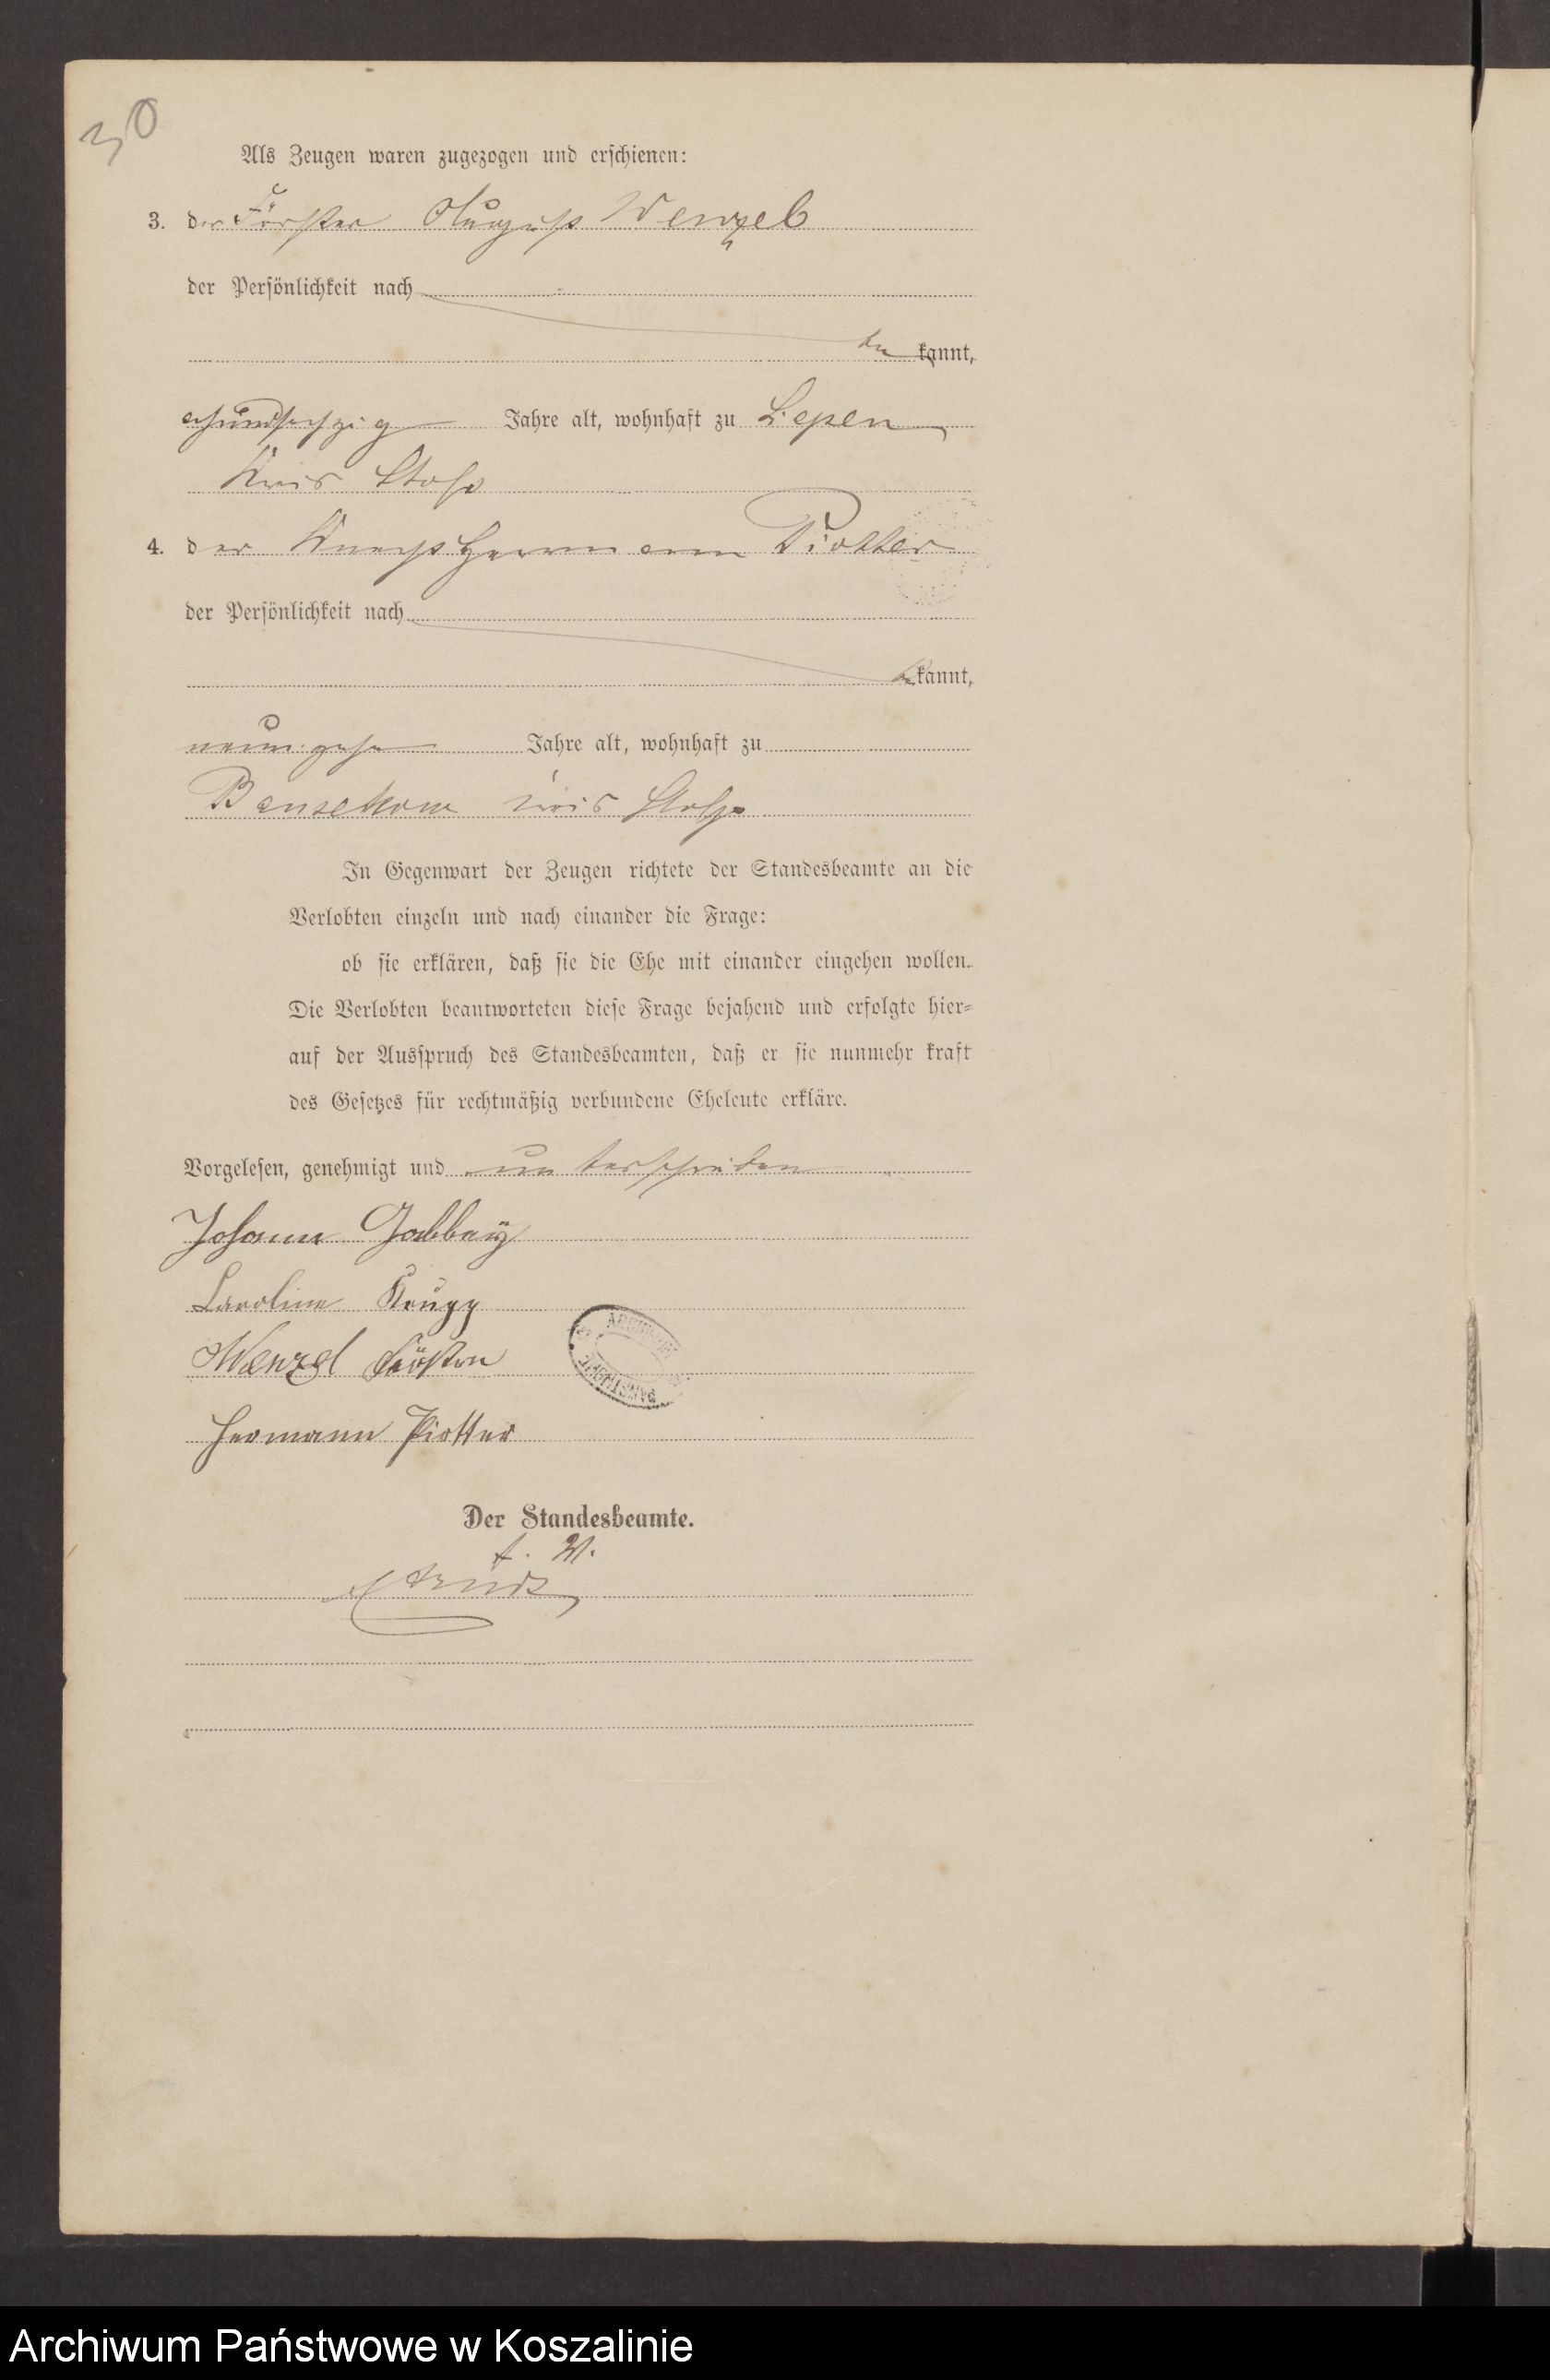 30
Als Zeugen waren zugezogen und erschienen:
3. der Förster August Wenzel
der Persönlichkeit nach
be kannt,
achundsechzig Jahre alt, wohnhaft zu Lepen
Kreis Stolp
4. der Knecht Hermann Piotter
der Persönlichkeit nach
bekannt,
neunzehn Jahre alt, wohnhaft zu
Bansekow Kreis Stolp
In Gegenwart der Zeugen richtete der Standesbeamte an die
Verlobten einzeln und nach einander die Frage:
ob sie erklären, daß sie die Ehe mit einander eingehen wollen.
Die Verlobten beantworteten diese Frage bejahend und erfolgte hier=
auf der Ausspruch des Standesbeamten, daß er sie nunmehr kraft
des Gesetzes für rechtmäßig verbundene Eheleute erkläre.
Vorgelesen, genehmigt und unterschrieben
Johann Jabbaÿ
Caroline Krupp
Wenzel Förster
Hermann Piotter
Der Standesbeamte.
Archiwum Państwowe w Koszalinie